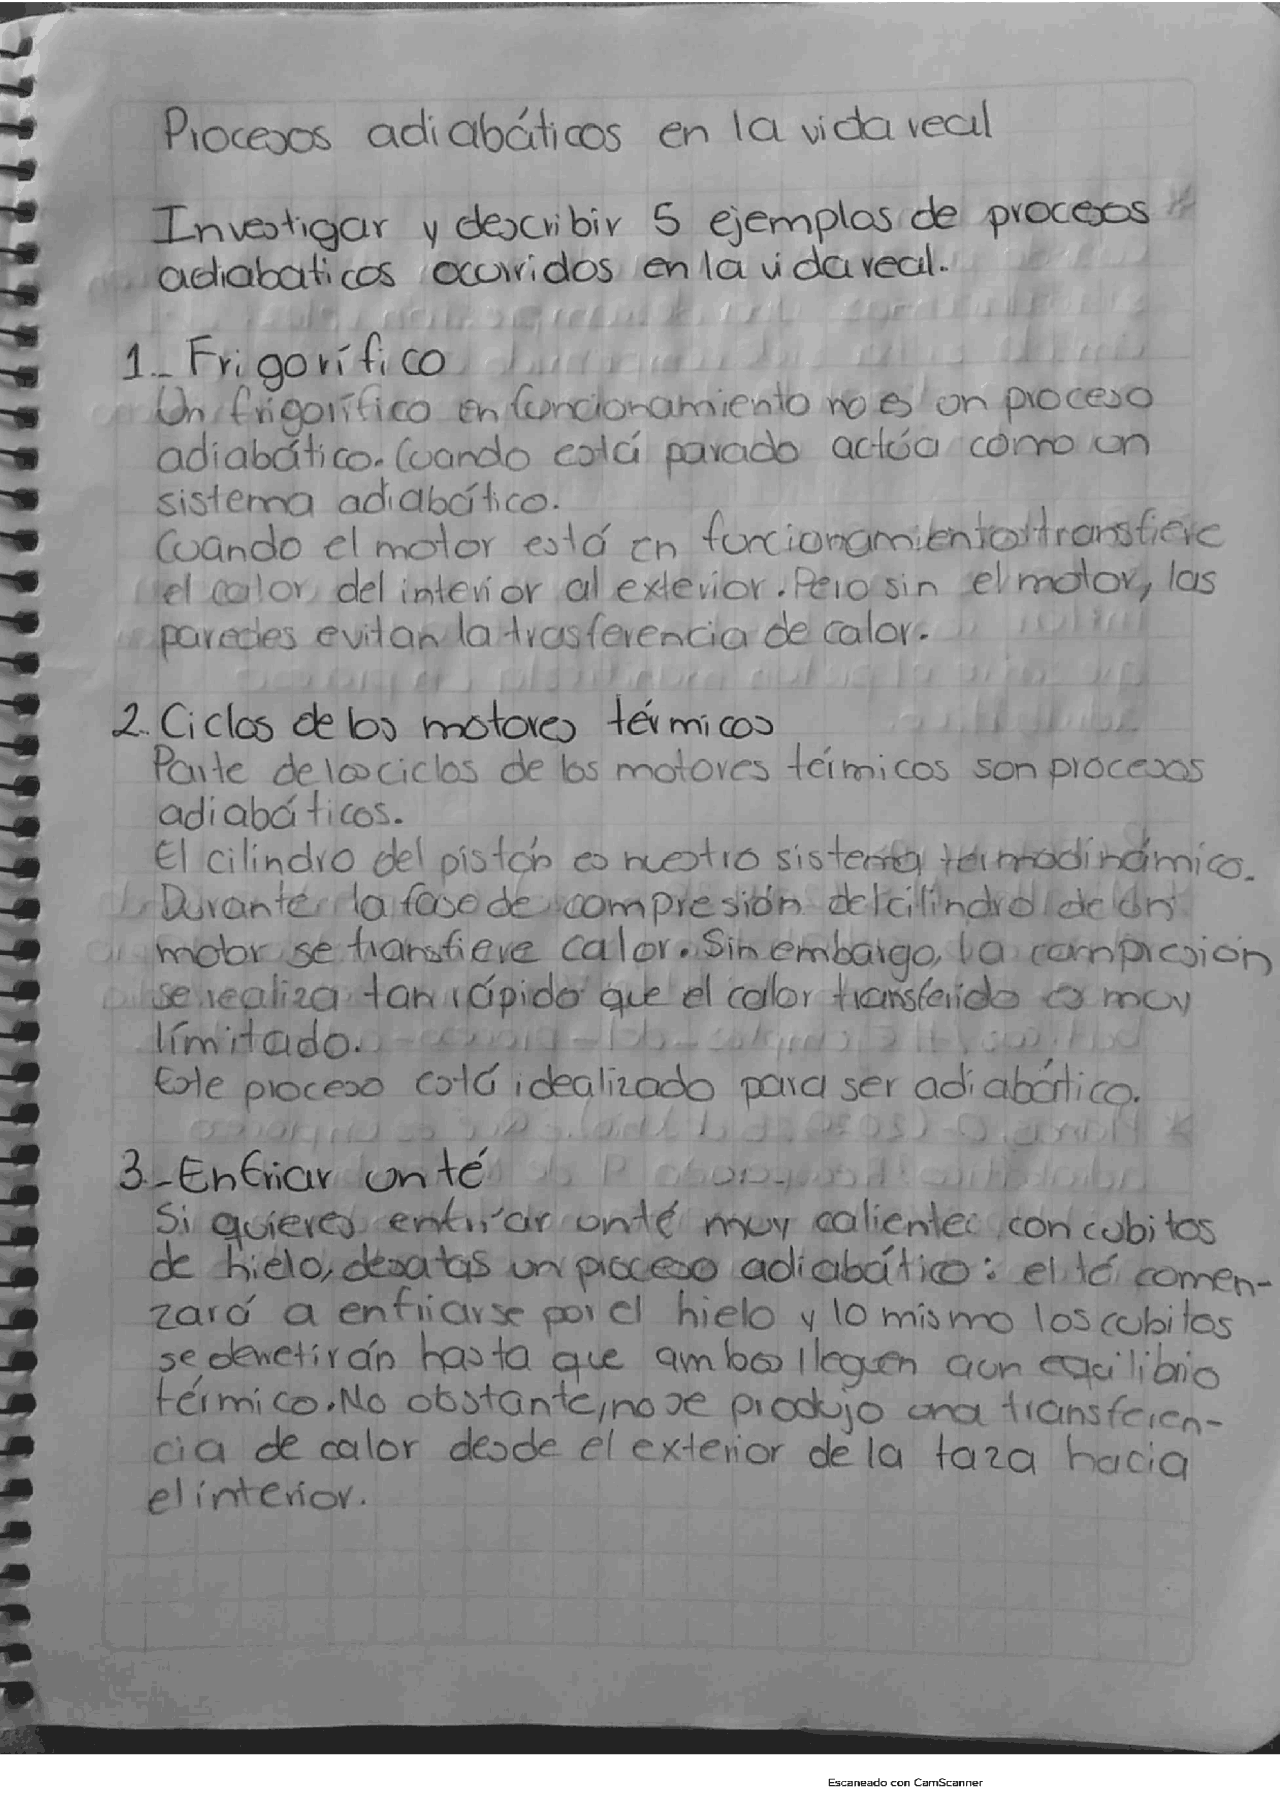 Procesos adiabáticos en la vida real
Investigar y describir 5 ejemplos de procesos
adiabaticos ocurridos en la vida real.
1.- Frigorífico
Un frigorífico en funcionamiento no es un proceso
adiabático. Cuando está parado actúa como un
sistema adiabático.
Cuando el motor está en funcionamiento transfiere
el calor del interior al exterior. Pero sin el motor, las
paredes evitan la trasferencia de calor.
2. Ciclos de los motores térmicos
Parte de los ciclos de los motores térmicos son procesos
adiabáticos.
El cilindro del pistón es nuestro sistema termodinámico.
Durante la fase de compresión del cilindro de un
motor se transfiere calor. Sin embargo, la compresión
se realiza tan rápido que el calor transferido es muy
limitado.
Este proceso está idealizado para ser adiabático.
3.- Enfriar un té
Si quieres enfriar un té muy caliente con cubitos
de hielo, desatas un proceso adiabático: el té comen-
zará a enfriarse por el hielo y lo mismo los cubitos
se derretirán hasta que ambos lleguen a un equilibrio
térmico. No obstante, no se produjo una transferen-
cia de calor desde el exterior de la taza hacia
el interior.
Escaneado con CamScanner